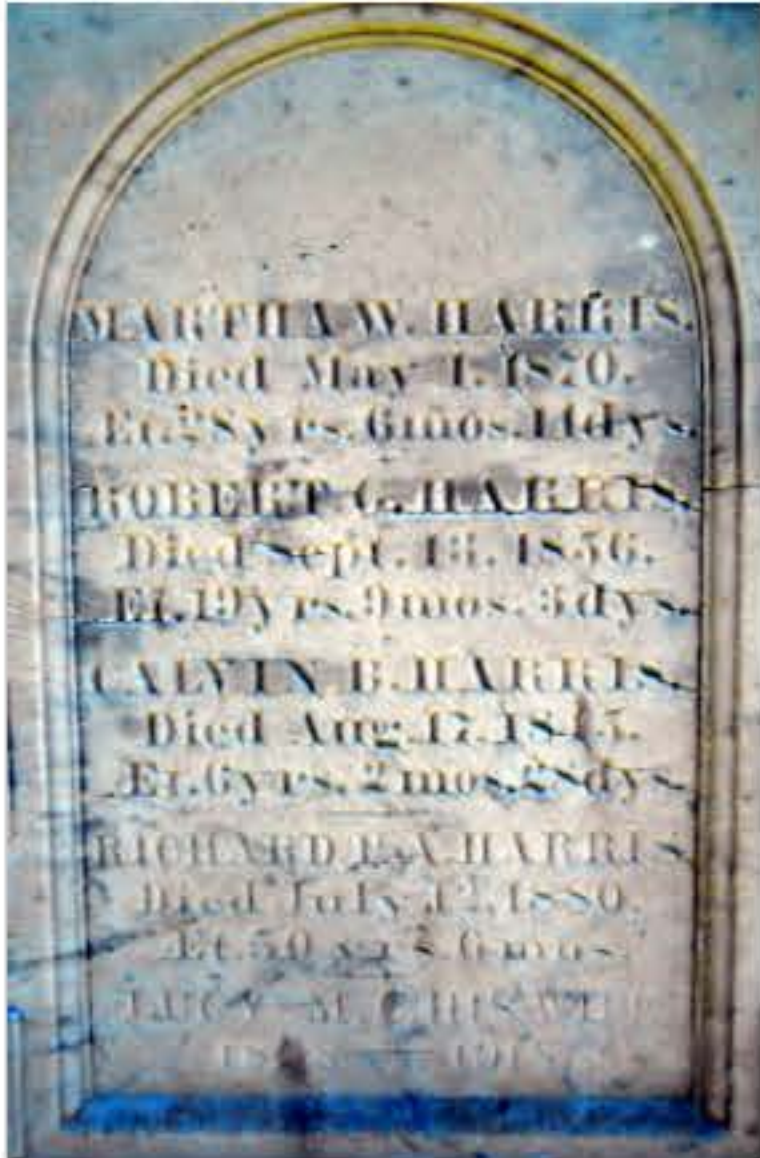 MARTHA W. HARRIS.
Died May 1, 1870.
Æt. 28 yrs. 6 mos. 14 dys.
ROBERT G. HARRIS.
Died Sept. 13, 1856.
Æt. 19 yrs. 9 mos. 3 dys.
CALVIN B. HARRIS.
Died Aug. 17, 1845.
Æt. 6 yrs. 2 mos. 28 dys.
RICHARD E. A. HARRIS
Died July 12, 1880.
Æt. 50 yrs. 6 mos.
LUCY M.